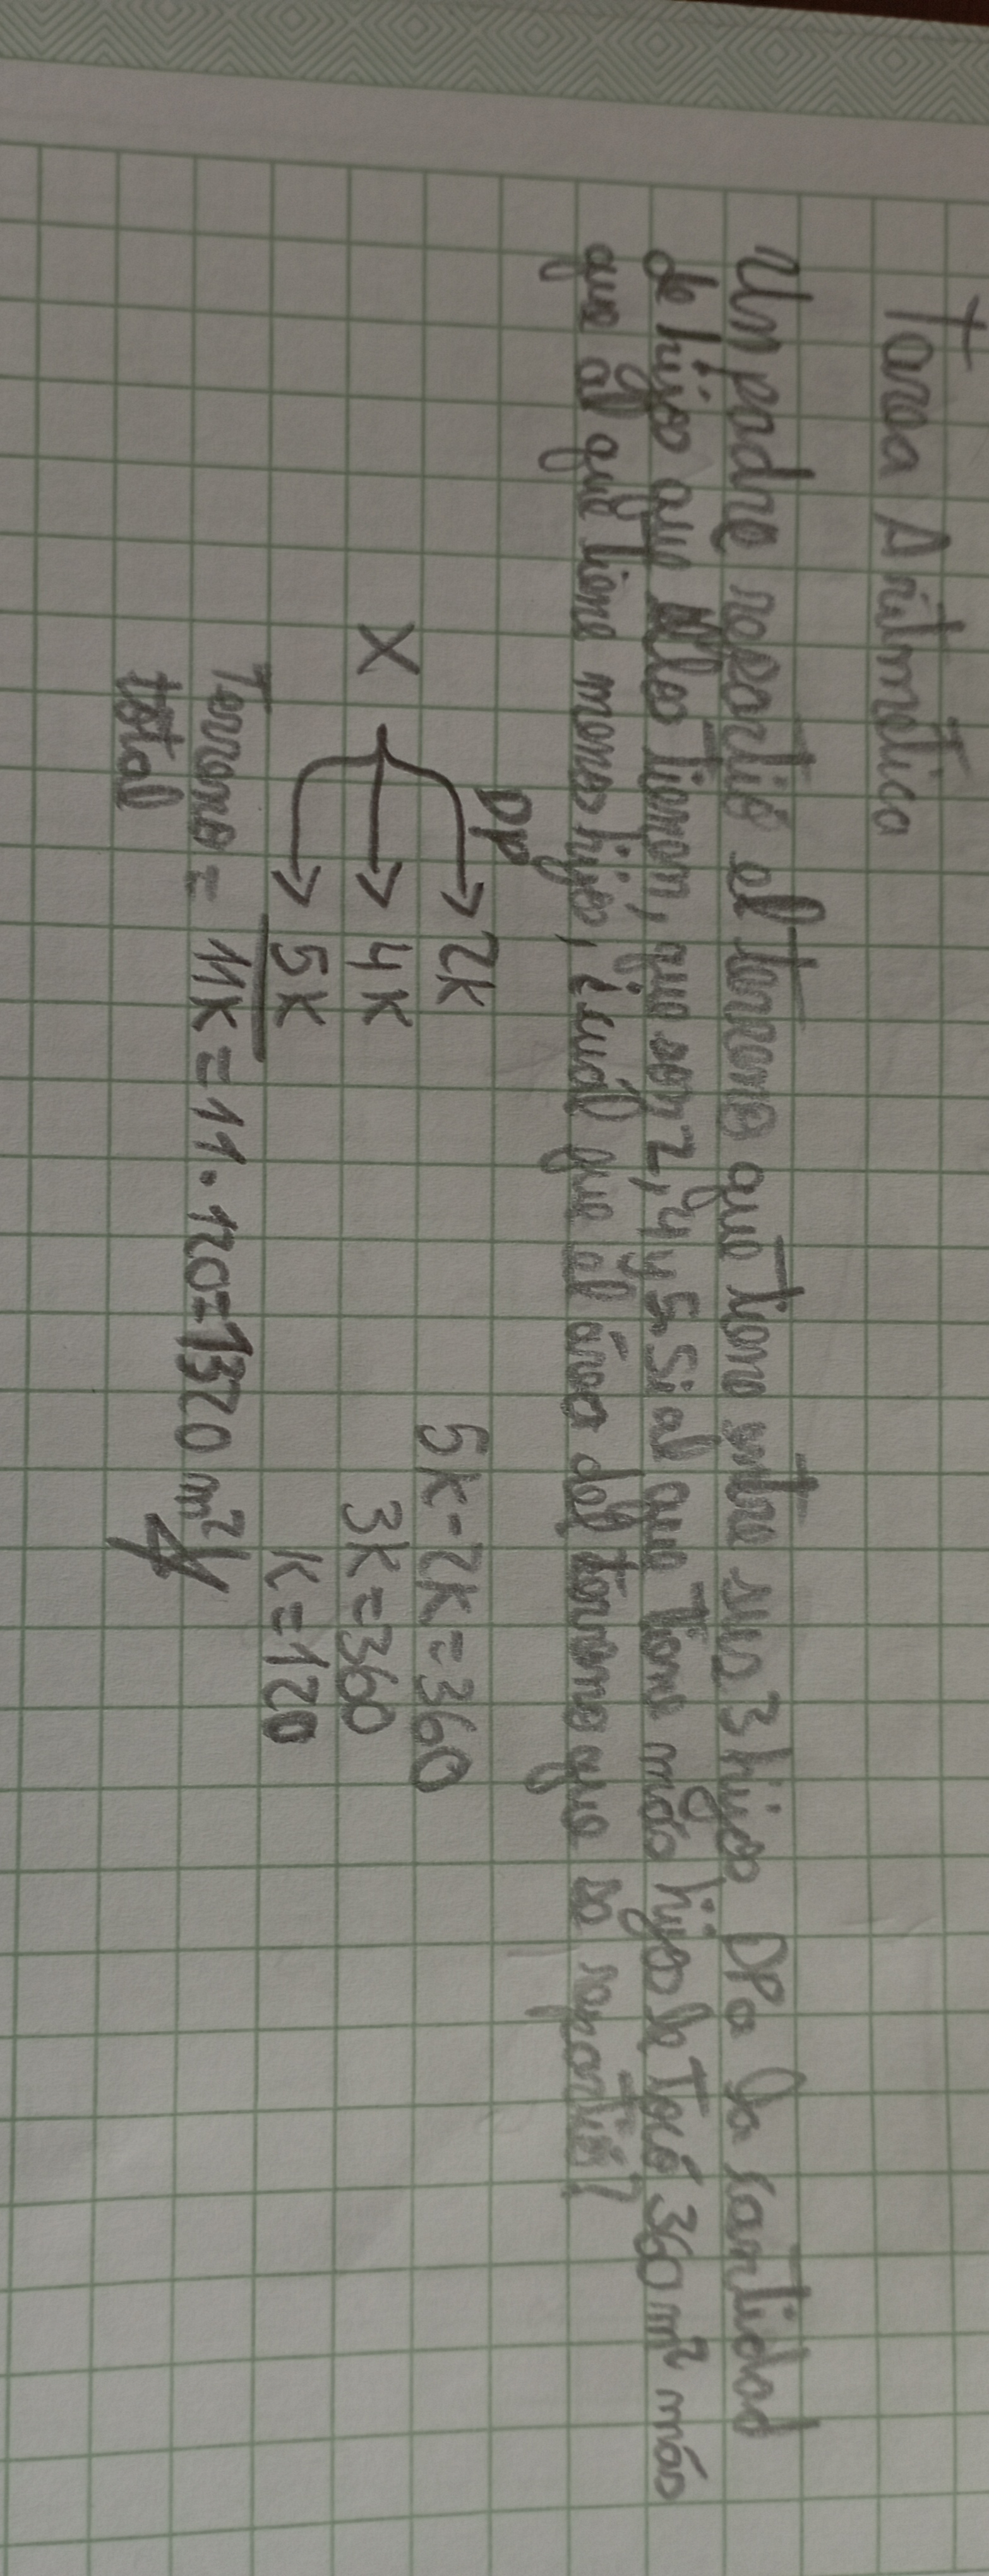 Tarea Aritmetica
Un padre repartió el terreno que tiene entre sus 3 hijos DP a la cantidad
de hijos que ellos tienen, que son 2, 4 y 5. Si al que tiene más hijos le tocó 360 m² más
que al que tiene menos hijos, ¿cuál que al área del terreno que se repartió?
DP
X
2k
4k
5k
5k-2k=360
3k=360
k=120
Terreno = 11k = 11·120=1320 m²
total